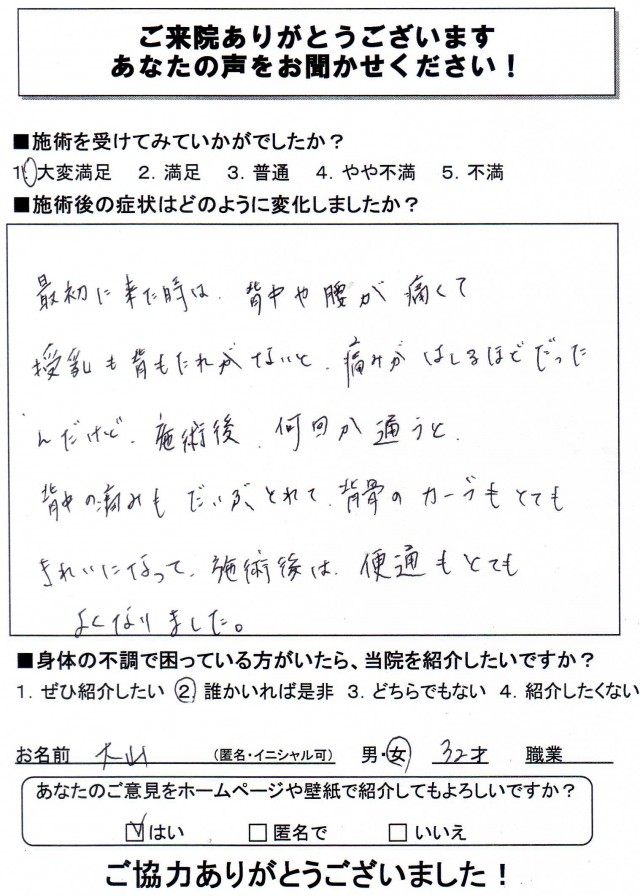 ご来院ありがとうございます
あなたの声をお聞かせください！
■施術を受けてみていかがでしたか？
1. 大変満足　2. 満足　3. 普通　4. やや不満　5. 不満
■施術後の症状はどのように変化しましたか？
最初に来た時は、背中や腰が痛くて
授乳も背もたれがないと、痛みがはしるほどだった
んだけど、施術後、何回か通うと、
背中の痛みもだいぶとれて、背骨のカーブもとても
きれいになって、施術後は、便通もとても
よくなりました。
■身体の不調で困っている方がいたら、当院を紹介したいですか？
1. ぜひ紹介したい　②誰かいれば是非　3. どちらでもない　4. 紹介したくない
お名前　大山　（匿名・イニシャル可）　男・女　32才　職業
あなたのご意見をホームページや壁紙で紹介してもよろしいですか？
☑はい　□匿名で　□いいえ
ご協力ありがとうございました！